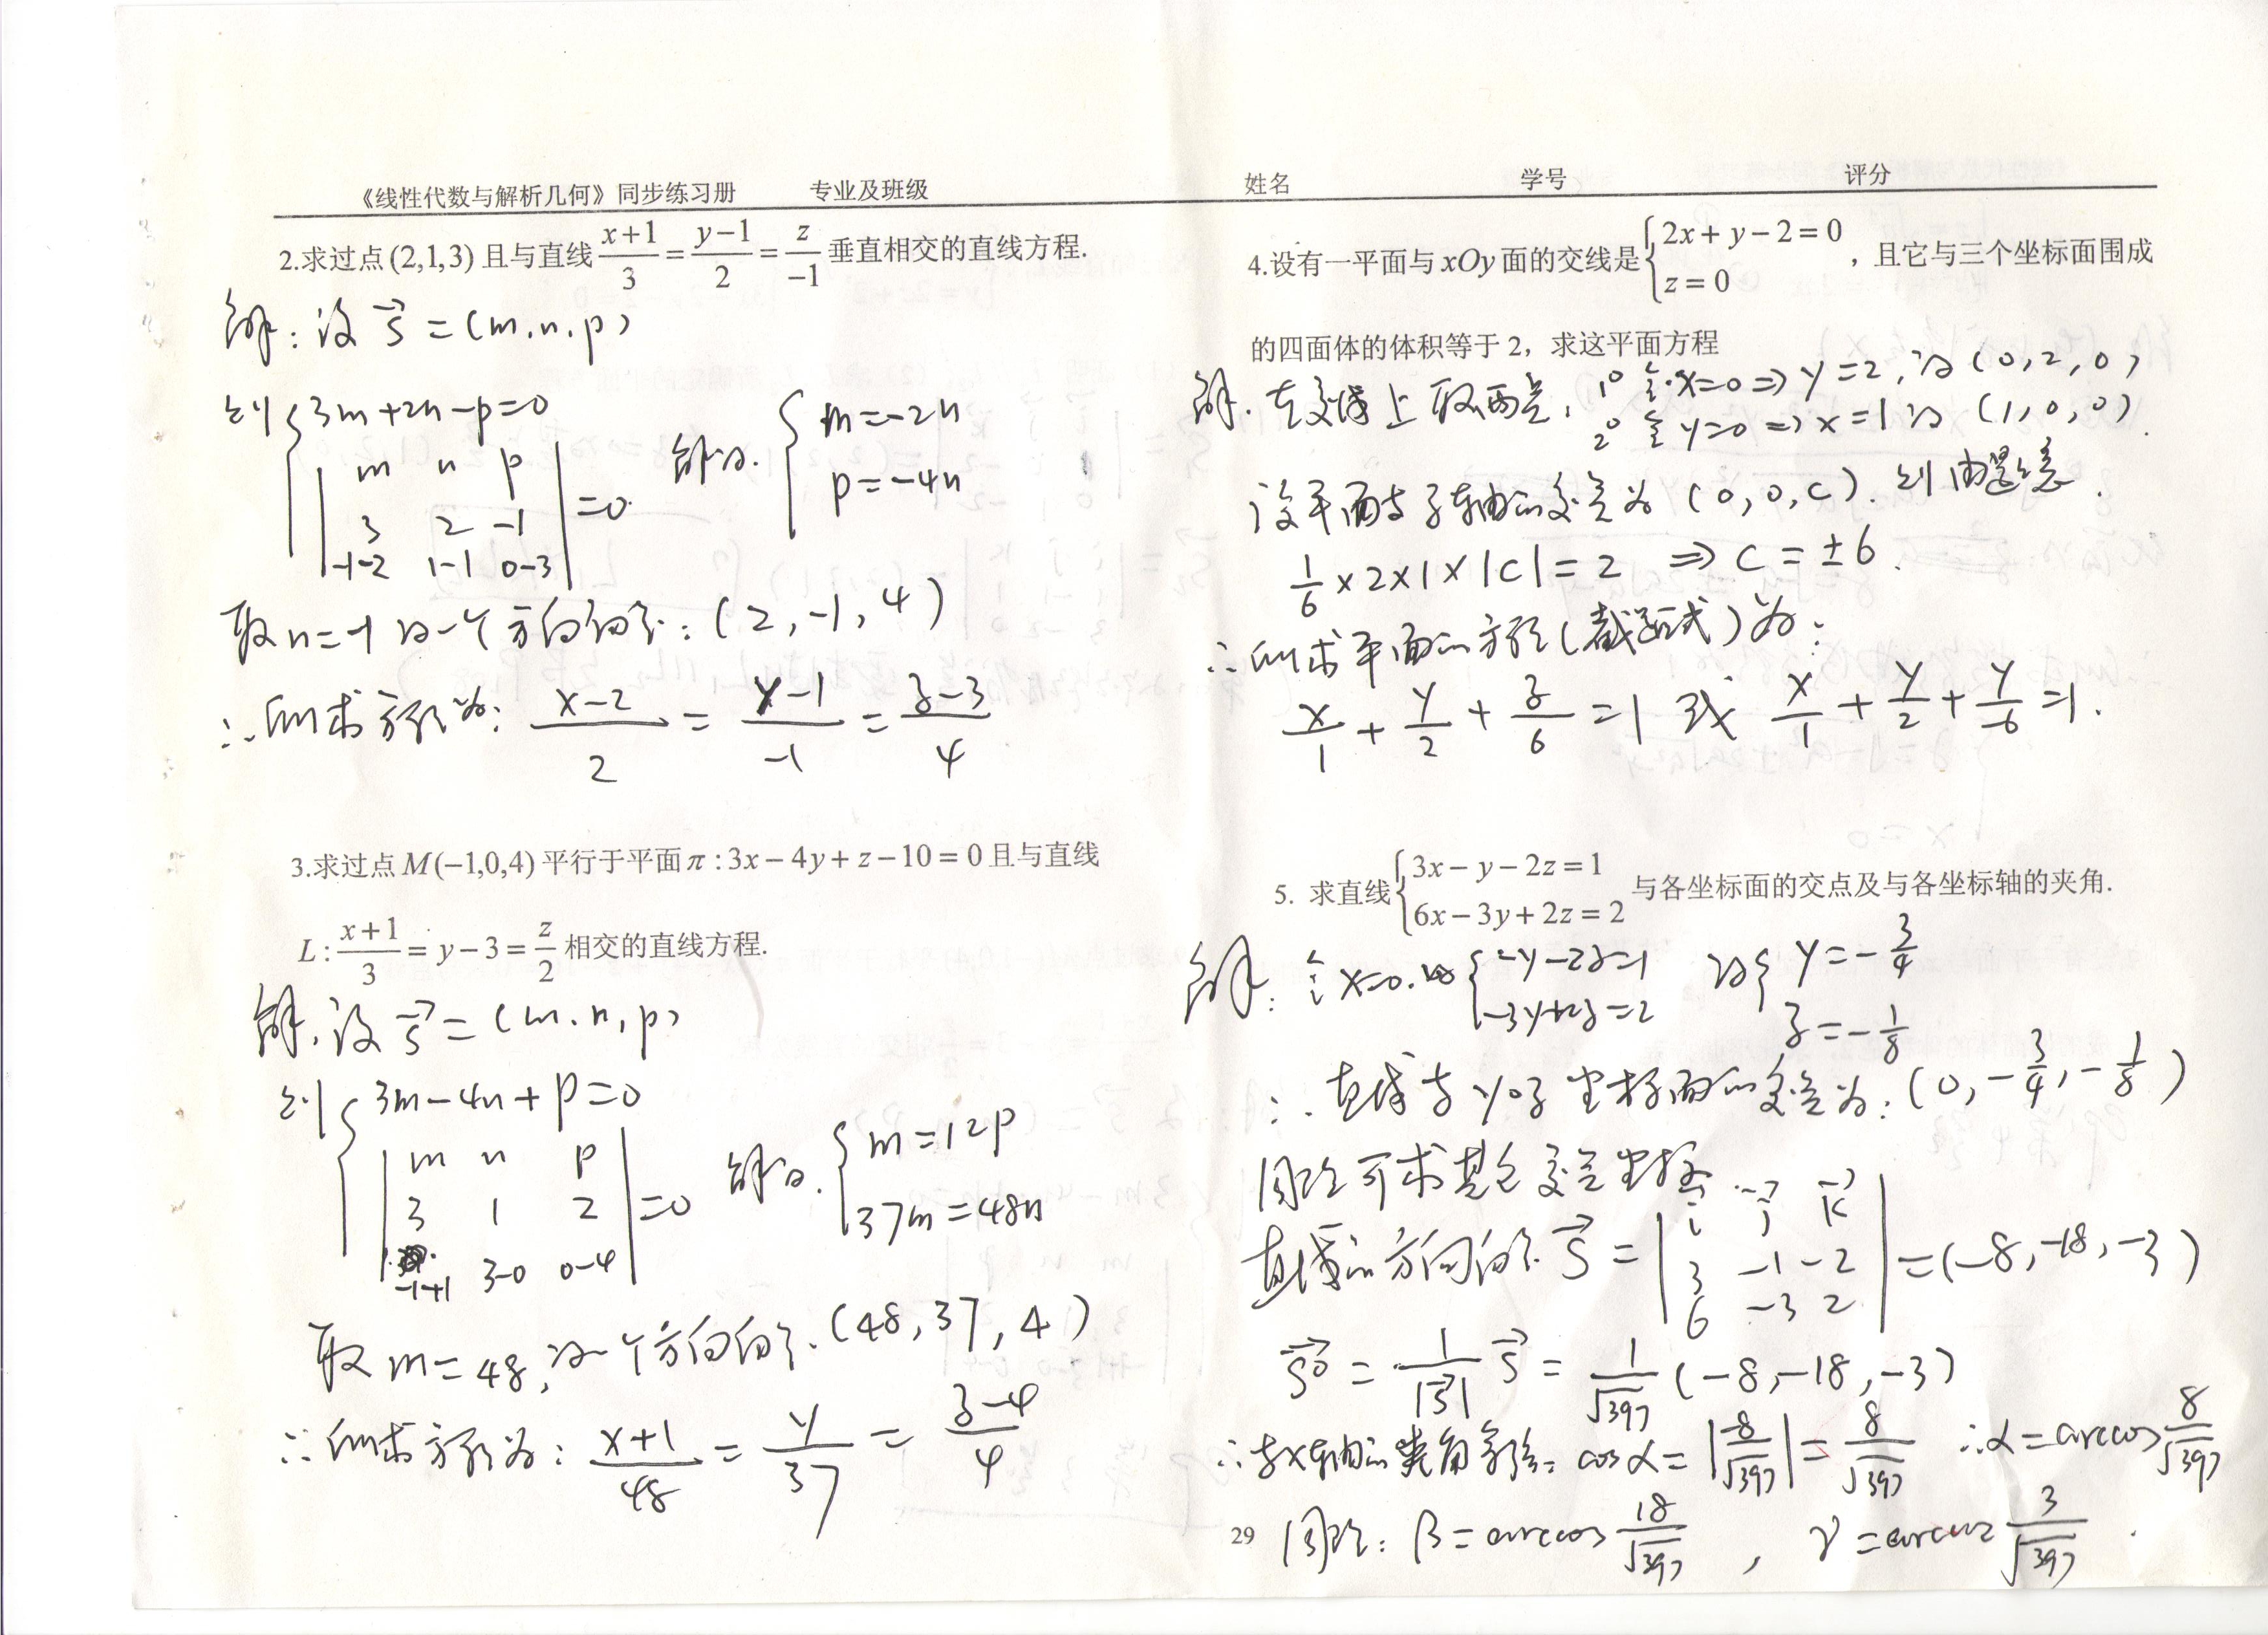 《线性代数与解析几何》同步练习册 专业及班级 姓名 学号 评分
2.求过点(2,1,3)且与直线 (x+1)/3 = (y−1)/2 = z/−1 垂直相交的直线方程.
解：设 s⃗ = (m, n, p)
则 { 3m+2n−p=0
| m n p |
| 3 2 −1 | =0
| −1−2 1−1 0−3 |
解得. { m=−2n
p=−4n
取n=−1 得一个方向向量：(2, −1, 4)
∴所求方程为: (x−2)/2 = (y−1)/−1 = (z−3)/4
3.求过点M(−1,0,4)平行于平面π:3x−4y+z−10=0且与直线
L: (x+1)/3 = y−3 = z/2 相交的直线方程.
解, 设 s⃗ = (m, n, p)
则 { 3m−4n+p=0
| m n p |
| 3 1 2 | =0
| −1+1 3−0 0−4 |
解得. { m=12p
37m=48n
取m=48, 得一个方向向量.(48, 37, 4)
∴所求方程为: (x+1)/48 = y/37 = (z−4)/4
4.设有一平面与xOy面的交线是 { 2x+y−2=0
z=0 ，且它与三个坐标面围成
的四面体的体积等于2，求这平面方程
解. 在交线上取两点, 1° 令x=0 ⇒ y=2, 得 (0, 2, 0)
2° 令y=0 ⇒ x=1 得 (1, 0, 0).
设平面与z轴的交点为 (0, 0, c). 则由题意.
1/6 ×2×1×|c|=2 ⇒ c=±6.
∴所求平面的方程(截距式)为:
x/1 + y/2 + z/6 =1 或 x/1 + y/2 + y/−6 =1.
5. 求直线 { 3x−y−2z=1
6x−3y+2z=2 与各坐标面的交点及与各坐标轴的夹角.
解: 令x=0. { −y−2z=1
−3y+2z=2 得{ y=−3/4
z=−1/8
∴直线与yoz坐标面的交点为: (0, −3/4, −1/8)
同理可求其它交点坐标
直线的方向向量 s⃗ = | i⃗ j⃗ k⃗ |
| 3 −1 −2 | =(−8, −18, −3)
| 6 −3 2 |
s⃗⁰ = 1/|s⃗| s⃗ = 1/√397 (−8, −18, −3)
∴与x轴的夹角余弦: cosα = |−8/√397| = 8/√397 ∴α=arccos 8/√397
29 同理: β=arccos 18/√397 , γ=arccos 3/√397 .